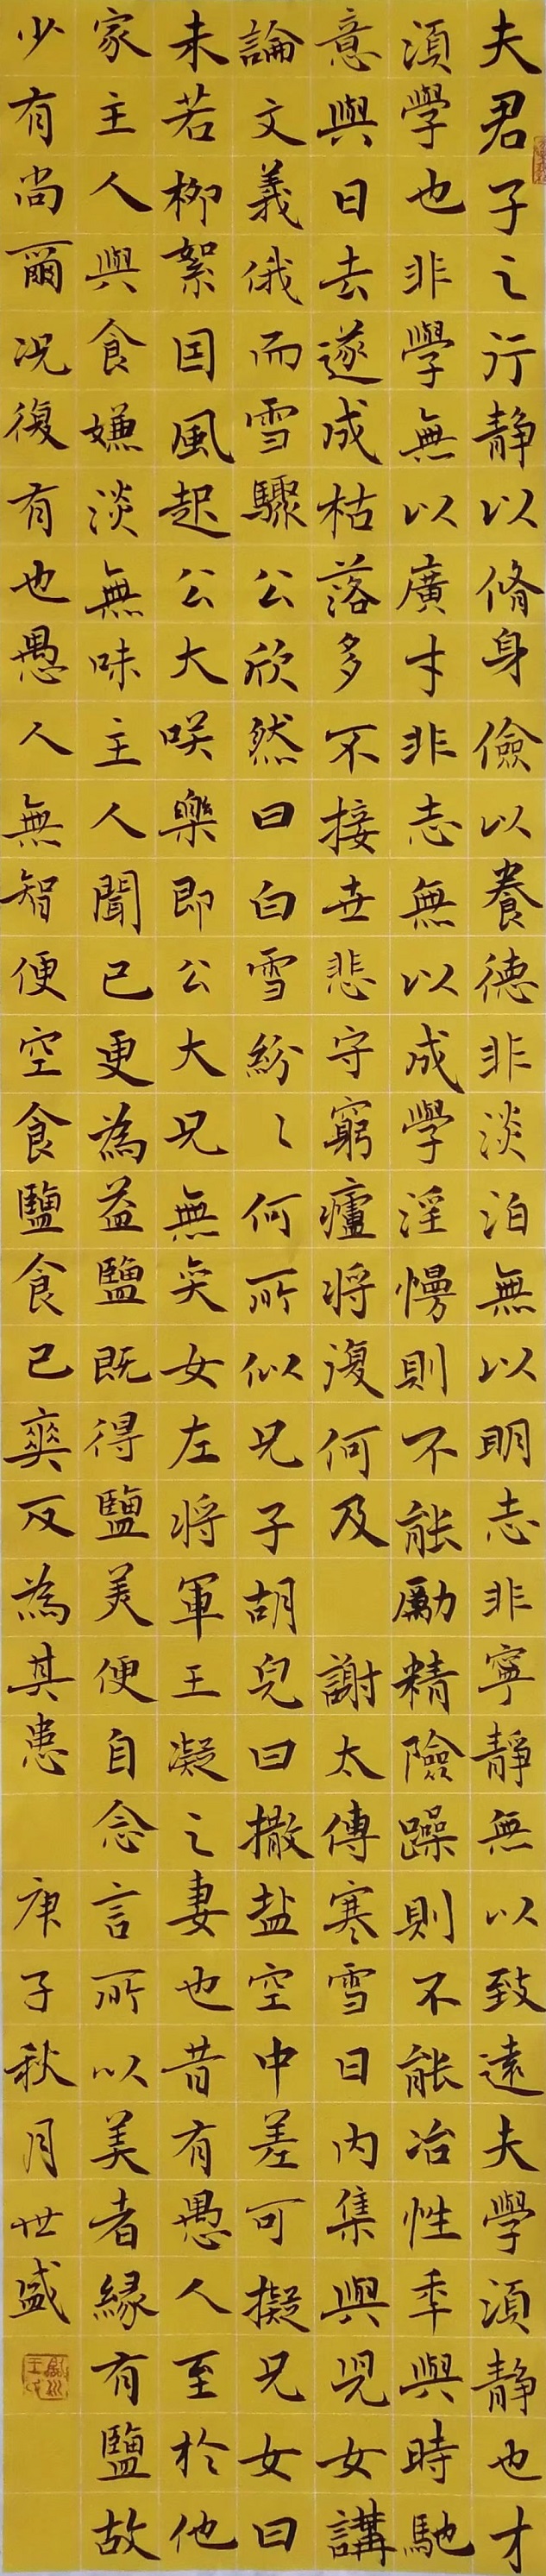 夫君子之行静以脩身儉以養德非淡泊無以明志非寧静無以致遠夫學須静也才
須學也非學無以廣才非志無以成學淫慢則不能勵精險躁則不能冶性年與時馳
意與日去遂成枯落多不接世悲守窮廬將復何及 謝太傅寒雪日内集與児女講
論文義俄而雪驟公欣然曰白雪紛〻何所似兄子胡兒曰撒盐空中差可擬兄女曰
未若柳絮因風起公大咲樂即公大兄無奕女左將軍王凝之妻也昔有愚人至於他
家主人與食嫌淡無味主人聞已更為益鹽既得鹽美便自念言所以美者緣有鹽故
少有尚爾况復有也愚人無智便空食鹽食已爽反為其患 庚子秋月世盛